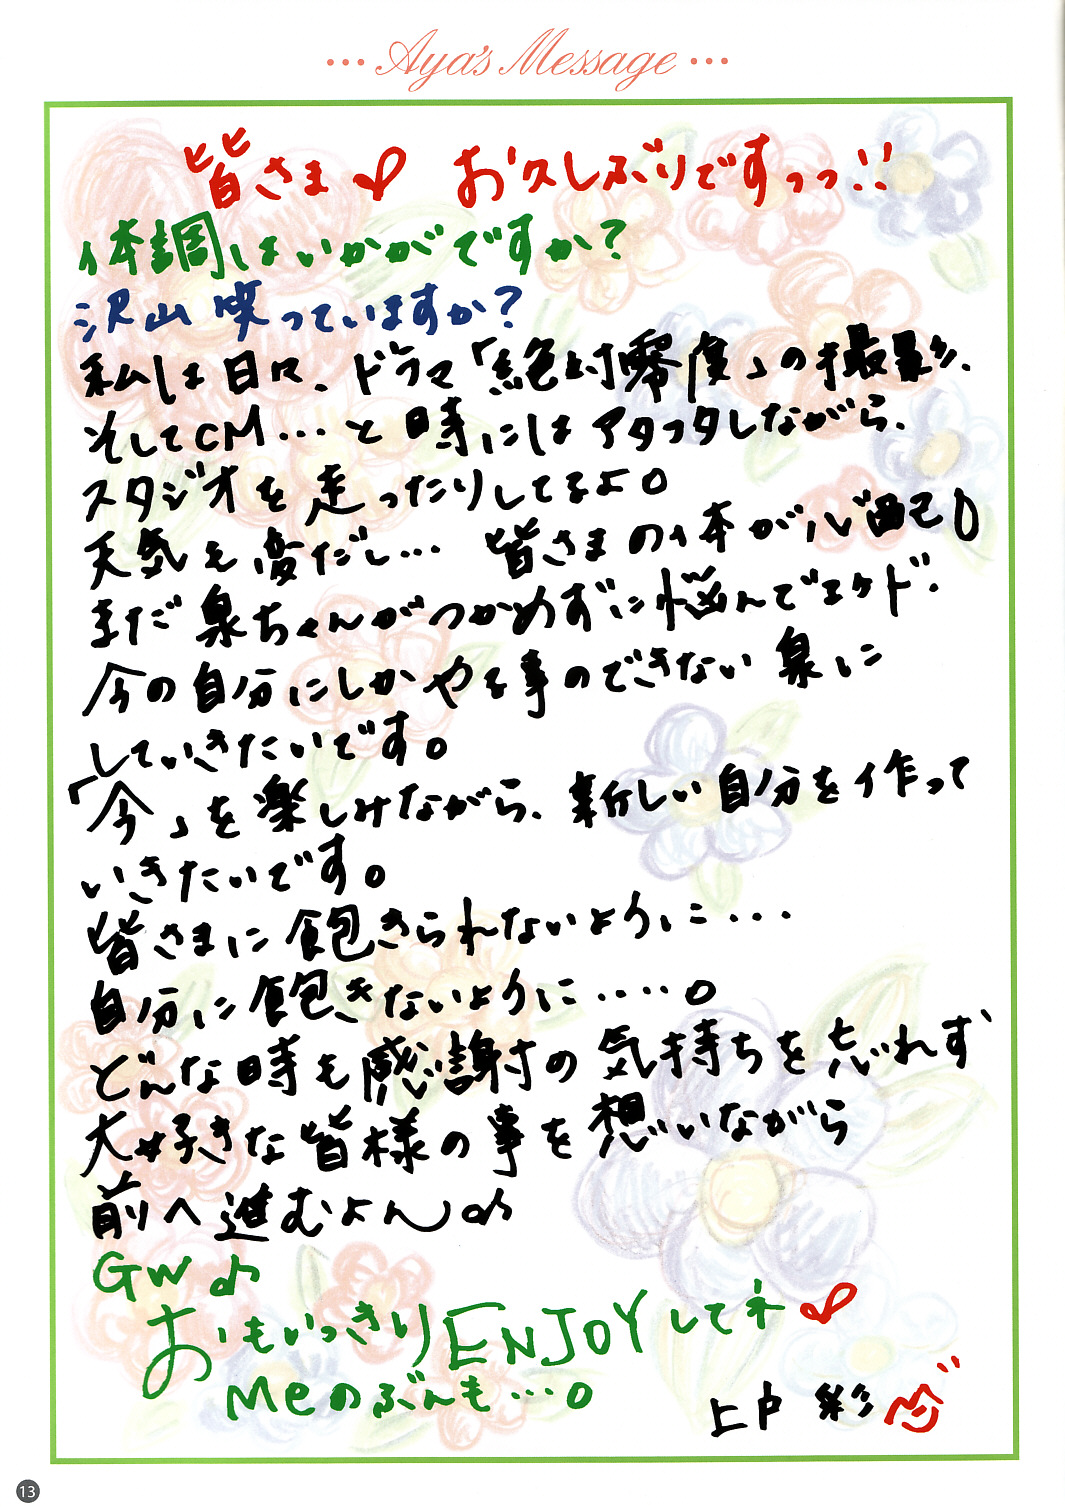 ••• Aya's Message •••
皆さま♡ お久しぶりですっっ!!
体調はいかがですか?
沢山笑っていますか?
私は日々、ドラマ「絶対零度」の撮影や、
そしてCM...と時にはアタフタしながら、
スタジオを走ったりしてるよ。
天気も変だし... 皆さまの体が心配
まだ泉ちゃんがつかめずに悩んでマスケド、
今の自分にしかやる事のできない泉に
していきたいです。
「今」を楽しみながら、新しい自分を作って
いきたいです。
皆さまに飽きられないように...
自分に飽きないように.....。
どんな時も感謝の気持ちを忘れず
大好きな皆様の事を想いながら
前へ進むよん♪
GW♪
おもいっきりENJOYしてネ♡
Meのぶんも...。
上戸 彩
13